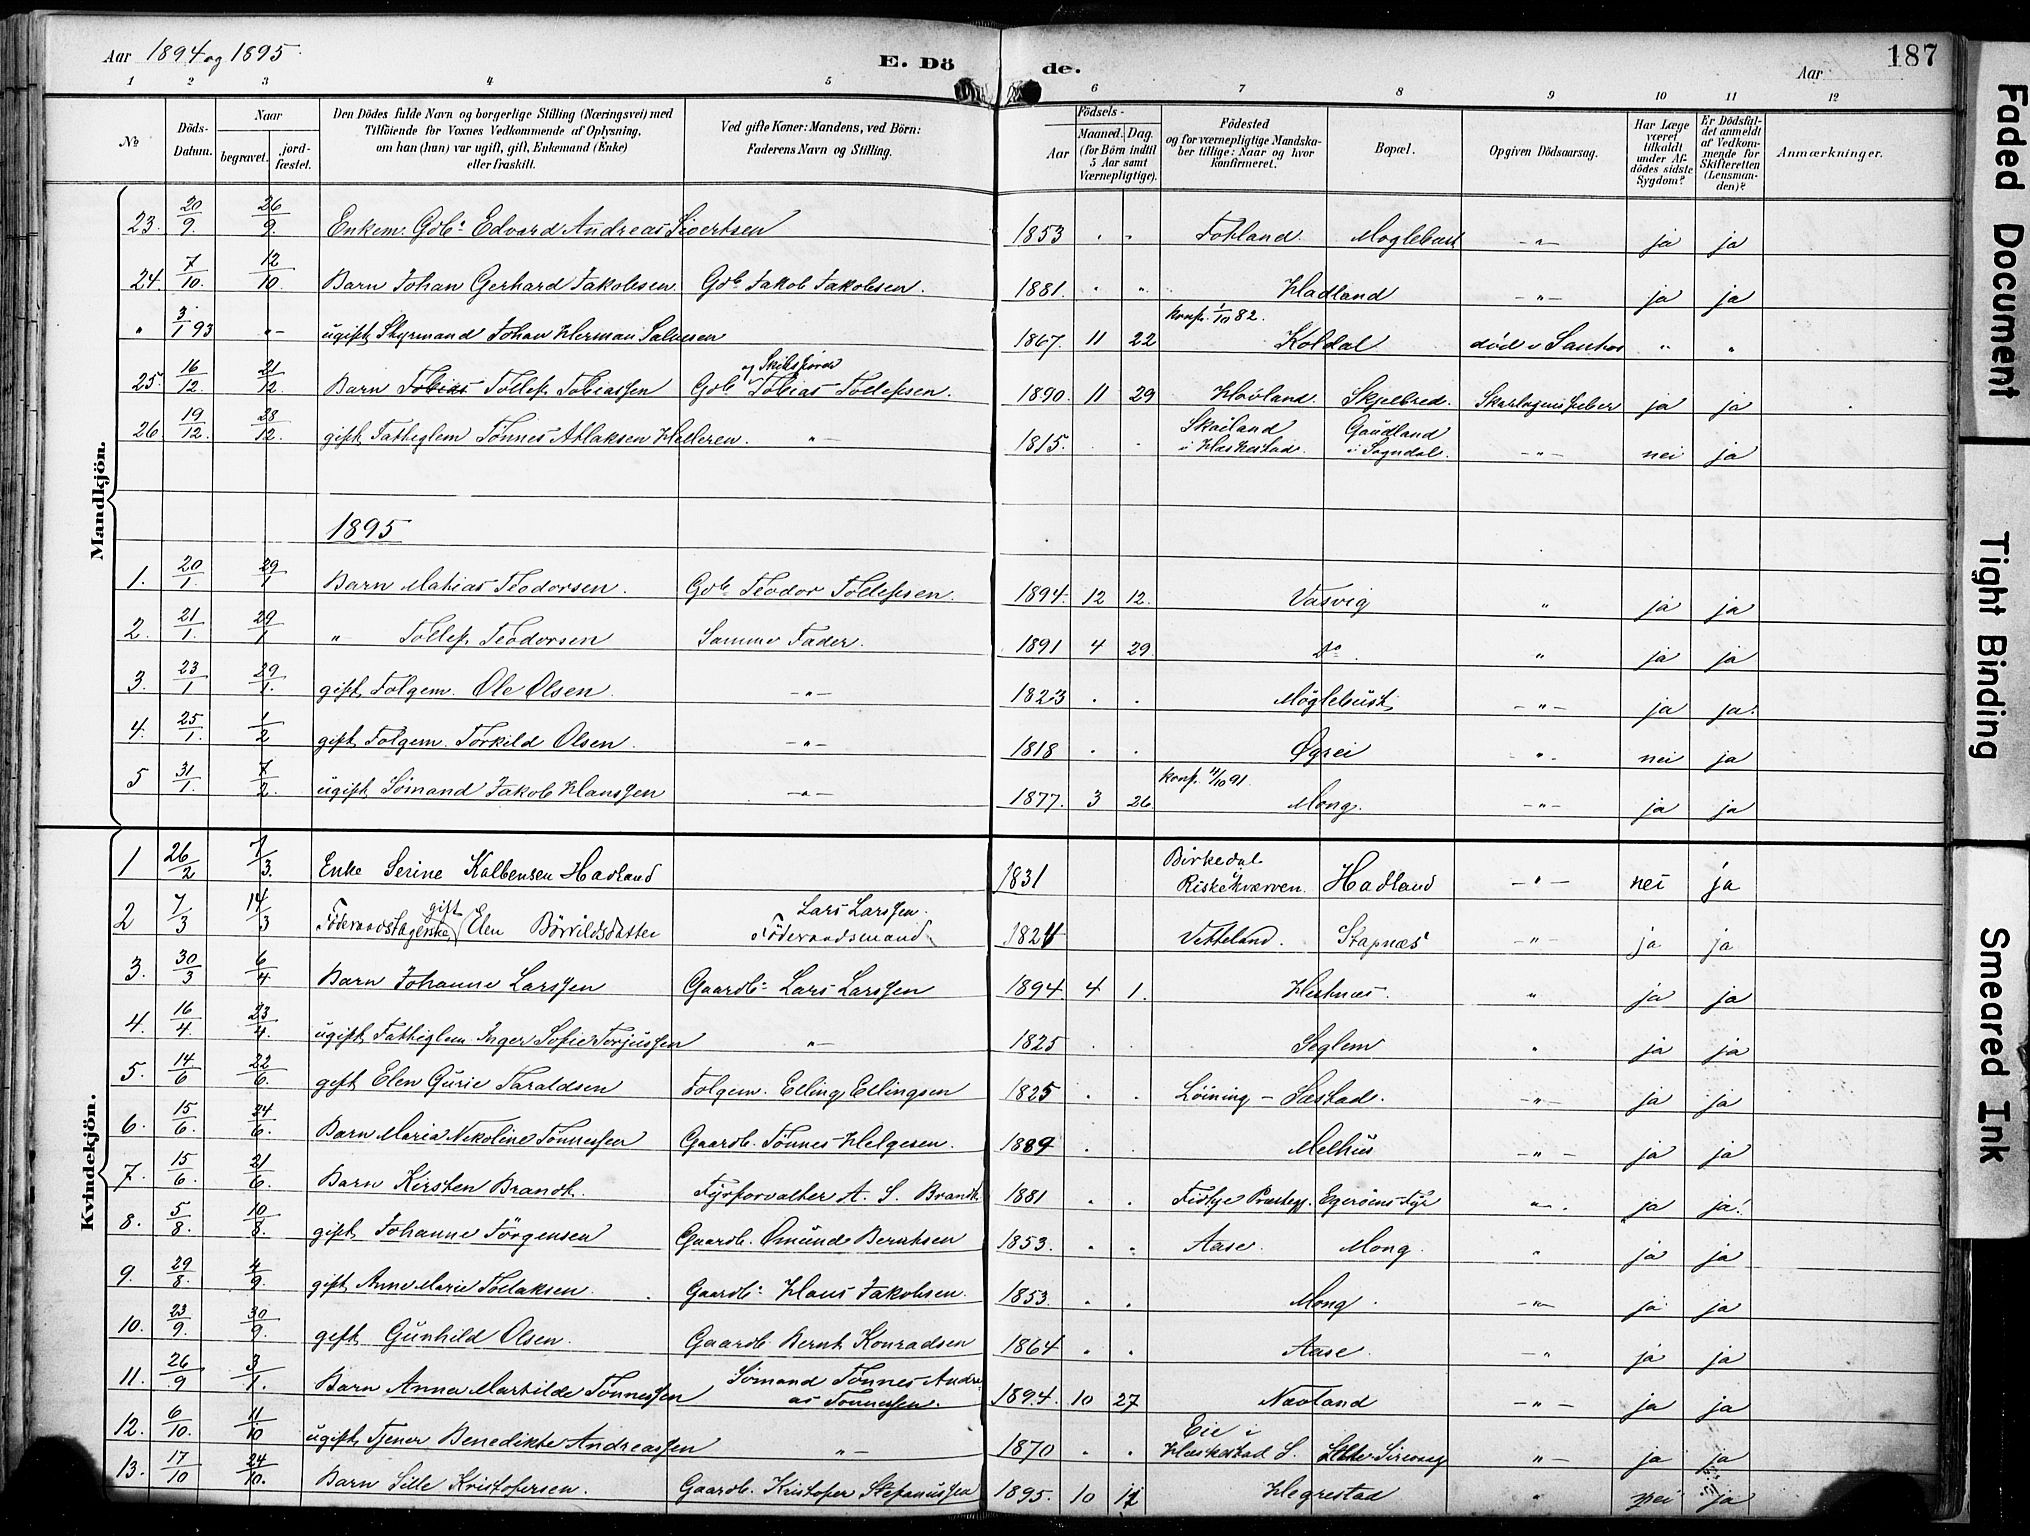 Aar 1894 og 1895.
E. Dö de.
Aar
187
1 2 3 4 5 6 7 8 9 10 11 12
No
Döds-Datum.
Naar
begravet.
jord-fæstet.
Den Dödes fulde Navn og borgerlige Stilling (Næringsvei) med
Tilföiende for Voxnes Vedkommende af Oplysning,
om han (hun) var ugift, gift, Enkemand (Enke)
eller fraskilt.
Ved gifte Koner: Mandens, ved Börn:
Faderens Navn og Stilling.
Födsels-
Aar
Maaned. Dag.
(for Börn indtil
5 Aar samt
Værnepligtige).
Födested
og for værnepligtige Mandska-
ber tillige: Naar og hvor
konfirmeret.
Bopæl.
Opgiven Dödsaarsag.
Har Læge
været
tilkaldt
under Af-
dödes sidste
Sygdom?
Er Dödsfal-
det anmeldt
af Vedkom-
mende for
Skifteretten
(Lensman-
den)?
Anmærkninger.
Mandkjön.
23. 20/9. 26/9. Enkem. Gdb. Edvard Andreas Sivertsen 1853 " " Fotland. Moglebust -"- ja ja
24. 7/10. 12/10. Barn Johan Gerhard Jakobsen. Gdb. Jakob Jakobsen. 1881. " " Hadland -"- ja ja
" 3/1 93 "- ugift Styrmand Johan Herman Salvesen 1867. 11 22 konf. 1/10 82. Koldal död i Santos " "
25. 16/12. 21/12. Barn Tollef Tobiassen Gdb. og Skibsförer Tobias Tollefsen. 1890. 11 29 Hovland. Skjelbred. Skarlagensfeber ja ja
26. 19/12. 28/12. gift Fattiglem Tönnes Atlaksen Helleren. -"- 1815. . . Skailand i Heskestad. Gaudland i Sogndal. -"- nei ja
1895
1. 20/1. 29/1 Barn Mathias Teodorsen. Gdb. Teodor Tollefsen. 1894. 12 12. Vasvig " ja ja
2. 21/1. 29/1 " Tollef Teodorsen Samme Fader. 1891 4 29. Do. " ja ja
3. 23/1 29/1. gift Folgem. Ole Olsen. -"- 1823 . . Möglebust -"- ja ja.
4. 25/1. 1/2 gift Folgem. Torkild Olsen. -"- 1818 . . Øgrei ". nei ja
5 31/1. 7/2. ugift Sömand Jakob Hanssen -"- 1877. 3 26. konf. 4/10 91. Mong. -"- ja ja
Kvindekjön.
1 26/2 7/3. Enke Serine Kalbensen Hadland 1831 Birkedal Riskekværven. Hadland -"- nei ja
2 7/3 14/3 Föderaadstagerske gift Elen Börrildsdatter Lars Larssen. Föderaadsmand. 1824 Vetteland. Stapnæs -"- ja ja
3. 30/3 6/4 Barn Johanne Larssen Gaardb. Lars Larssen 1894 4 1. Hestnæs. " ja ja
4. 16/4. 23/4. ugift Fattiglem Inger Sofie Terjussen -"- 1825 . . Seglem " ja ja
5. 14/6 22/6. gift Elen Gurie Taraldsen Folgem. Elling Ellingsen 1825 . . Löining - Sæstad. -"- ja ja
6. 15/6. 24/6. Barn Maria Nikoline Tönnessen Gaardb. Tönnes Helgesen. 1889 . . Melhus -"- ja ja
7. 15/6. 21/6. Barn Kirsten Brandt. Fyrforvalter A. S. Brandt. 1881 . . Fedtje Præstegj. Egeröens Fyr "- . ja ja.
8. 5/8. 10/8. gift Johanne Jörgensen Gaardb. Omund Berntsen 1853. " " Aase. Mong. " ja ja
9. 29/8. 4/9. gift Anne Marie Tollaksen. Gaardb. Hans Jakobsen. 1853. . . Mong. -"- ja ja
10. 23/9. 30/9. gift Gunhild Olsen. Gaardb. Bernt Konradsen 1864 " . Aase. -" ja ja
11. 26/9 3/1. Barn Anna Martilde Tönnessen Sömand Tönnes Andreas Tönnessen. 1894. 10 27 Nævland -"- ja ja
12. 6/10. 11/10 ugift Tjener Benedikte Andreassen -"- 1870 . . Eie i Heskestad S. Sirevaag "- ja ja
13. 17/10 24/10. Barn Sille Kristofersen. Gaardb. Kristofer Stefanussen 1895. 10 Hegrestad " nei ja
Faded Document
Tight Binding
Smeared Ink